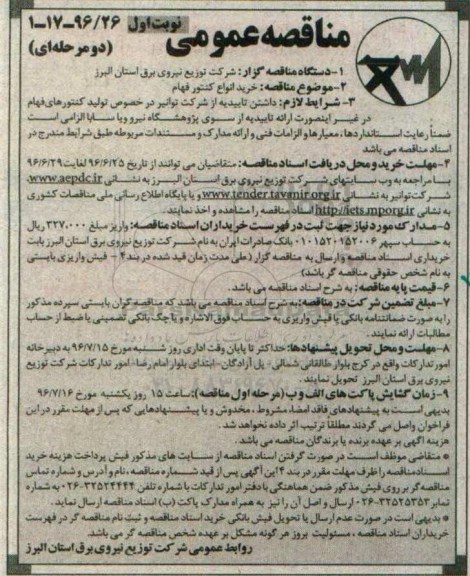 مناقصه عمومی
نوبت اول ۹۶/۲۶-۱۷-۱
(دو مرحله‌ای)
۱-دستگاه مناقصه گزار: شرکت توزیع نیروی برق استان البرز
۲-موضوع مناقصه: خرید انواع کنتور فهام
۳- شرایط لازم: داشتن تاییدیه از شرکت توانیر در خصوص تولید کنتورهای فهام
در غیر اینصورت ارائه تاییدیه از سوی پژوهشگاه نیرو ویا سابا الزامی است
ضمناً رعایت استانداردها، معیارها و الزامات فنی و ارائه مدارک و مستندات مربوطه طبق شرایط مندرج در
اسناد مناقصه می باشد
۴-مهلت خرید و محل دریافت اسناد مناقصه: متقاضیان می توانند از تاریخ ۹۶/۶/۲۵ لغایت ۹۶/۶/۲۹
با مراجعه به وب سایتهای شرکت توزیع نیروی برق استان البرز به نشانی www.aepdc.ir،
شرکت توانیر به نشانی www.tender.tavanir.org.ir و یا پایگاه اطلاع رسانی ملی مناقصات کشوری
به نشانی http://iets.mporg.ir اسناد مناقصه را مشاهده و اخذ نمایند.
۵-مدارک مورد نیاز جهت ثبت در فهرست خریداران اسناد مناقصه: واریز مبلغ ۳۲۷،۰۰۰ ریال
به حساب سپهر ۰۱۰۱۵۲۰۱۵۲۰۰۶ بانک صادرات ایران به نام شرکت توزیع نیروی برق استان البرز بابت
خریداری اسناد مناقصه و ارسال به مناقصه گزار (طی مدت زمان قید شده در بند ۴ - فیش واریزی بایستی
به نام شخص حقوقی مناقصه گر باشد)
۶-قیمت پایه مناقصه: به شرح اسناد مناقصه می باشد.
۷-مبلغ تضمین شرکت در مناقصه: به شرح اسناد مناقصه می باشد که مناقصه گران بایستی سپرده مذکور
را به صورت ضمانتنامه بانکی یا فیش واریزی به حساب فوق الاشاره و یا چک بانکی تضمینی یا ضبط از حساب
مطالبات ارائه نمایند.
۸-مهلت و محل تحویل پیشنهادها: حداکثر تا پایان وقت اداری روز شنبه مورخ ۹۶/۷/۱۵ به دبیرخانه
امور تدارکات واقع در کرج بلوار طالقانی شمالی- پل آزادگان- ابتدای بلوار امام رضا- امور تدارکات شرکت توزیع
نیروی برق استان البرز تحویل نمایند.
۹-زمان گشایش پاکت های الف و ب (مرحله اول مناقصه): ساعت ۱۵ روز یکشنبه مورخ ۹۶/۷/۱۶
بدیهی است به پیشنهادهای فاقد امضا، مشروط، مخدوش و یا پیشنهادهایی که پس از مهلت مقرر در این
فراخوان واصل می گردند مطلقا ترتیب اثر داده نخواهد شد.
هزینه آگهی بر عهده برنده یا برندگان مناقصه می باشد.
* متقاضی موظف است در صورت گرفتن اسناد مناقصه از سایت های مذکور فیش پرداخت هزینه خرید
اسناد مناقصه را ظرف مهلت مقرر در بند ۴ این آگهی پس از قید شماره مناقصه، نام و آدرس و شماره تماس
مناقصه گر بر روی فیش مذکور ضمن هماهنگی با دفتر امور تدارکات با شماره تلفن ۳۲۵۲۴۴۴۴-۰۲۶ به شماره
نمابر ۳۲۵۲۵۳۵۳-۰۲۶ ارسال و اصل آن را نیز به همراه مدارک پاکت (ب) اسناد مناقصه ارسال نماید.
* بدیهی است در صورت عدم ارسال یا تحویل فیش بانکی خرید اسناد مناقصه و ثبت نام مناقصه گر در فهرست
خریداران اسناد مناقصه، مسئولیت بروز هر گونه مشکل بر عهده شخص مناقصه گر می باشد.
روابط عمومی شرکت توزیع نیروی برق استان البرز